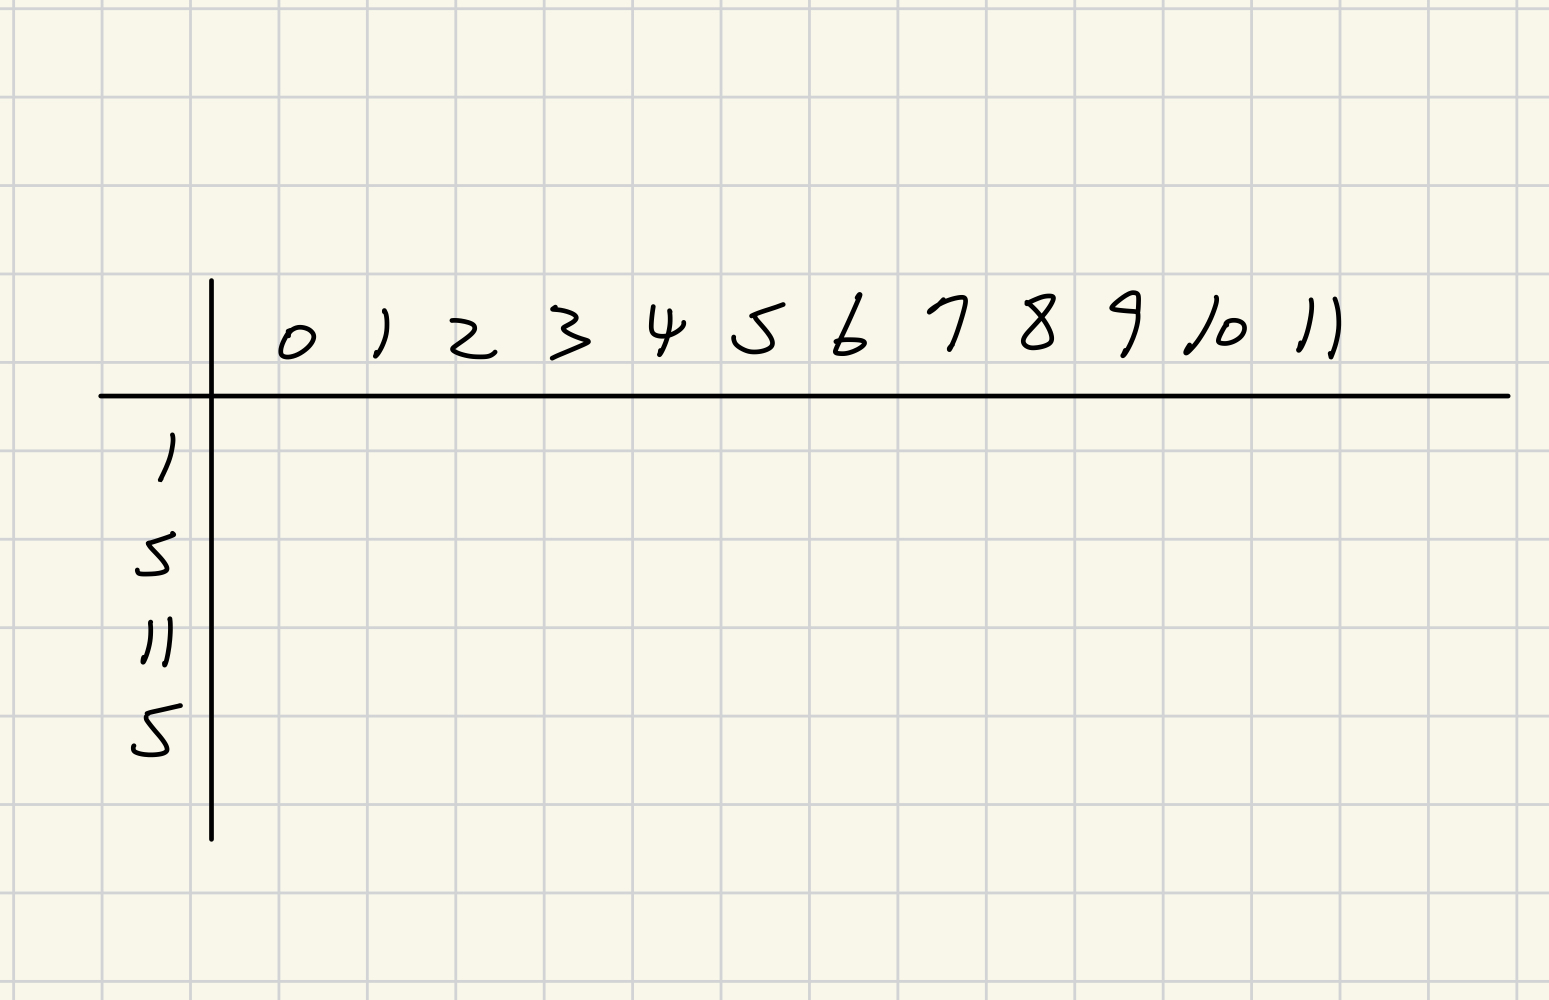 0 1 2 3 4 5 6 7 8 9 10 11
1
5
11
5